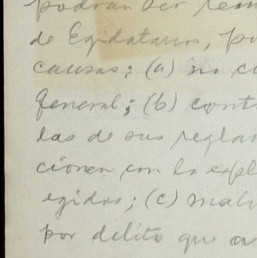 podrán ser rem
de Egidatarios, po
causas: (a) no cu
General; (b) cont
las de sus reglam
cionen con la expl
egidos; (c) malv
por delito que a